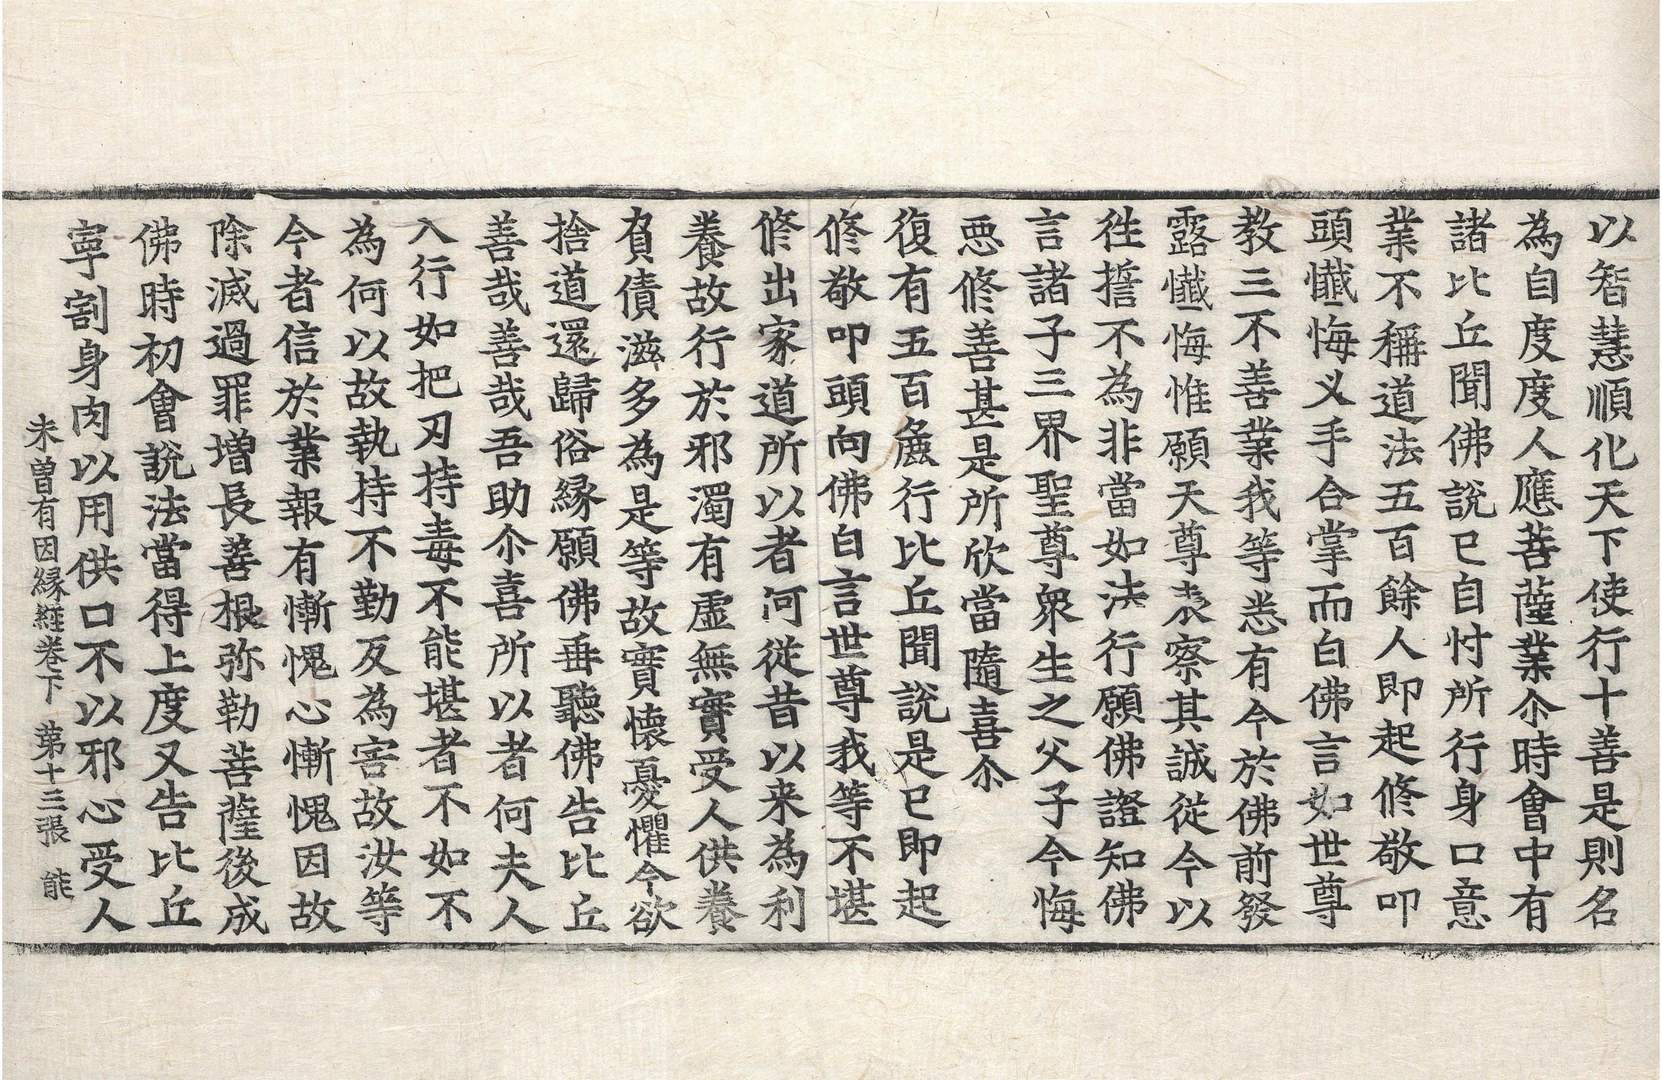 以智慧順化天下使行十善是則名
為自度度人應菩薩業尒時會中有
諸比丘聞佛說已自忖所行身口意
業不稱道法五百餘人即起修敬叩
頭懴悔乂手合掌而白佛言如世尊
教三不善業我等悉有今於佛前發
露懴悔惟願天尊表察其誠從今以
徃誓不為非當如法行願佛證知佛
言諸子三界聖尊衆生之父子今悔
惡修善甚是所欣當隨喜尒
復有五百麁行比丘聞說是已即起
修敬叩頭向佛白言世尊我等不堪
修出家道所以者何從昔以来為利
養故行於邪濁有虛無實受人供養
負債滋多為是等故實懷憂懼今欲
捨道還歸俗縁願佛垂聽佛告比丘
善哉善哉吾助尒喜所以者何夫人
入行如把刃持毒不能堪者不如不
為何以故執持不勤反為害故汝等
今者信於業報有慚愧心慚愧因故
除滅過罪増長善根弥勒菩薩後成
佛時初會說法當得上度又告比丘
寜割身肉以用供口不以邪心受人
未曽有因縁經卷下 第十三張 能